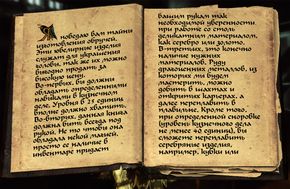 Поведаю вам тайны
изготовления обручей.
Эти ювелирные изделия
служат для украшения
головы, так же их можно
выгодно продать за
высокую цену.
Во-первых, вы должны
обладать определенными
навыками в кузнечном
деле. Уровня в 25 единиц
вполне должно хватить.
Во-вторых, данная книга
должна быть всегда под
рукой. Не то чтобы она
обладала некой магией,
просто ее наличие в
инвентаре придаст
вашим рукам так
необходимой уверенности
при работе со столь
деликатным материалом,
как серебро или золото.
В-третьих, это конечно
наличие материала. Руду
драгоценных металлов, из
которых ты будет
мастерить, можно
добыть в шахтах и
открытых карьерах, а
далее переплавить в
плавильне. Кроме того,
при определенной сноровке
(уровень кузнечного дела
не менее 40 единиц), вы
сможете переплавить
серебряные изделия,
например, кубки или